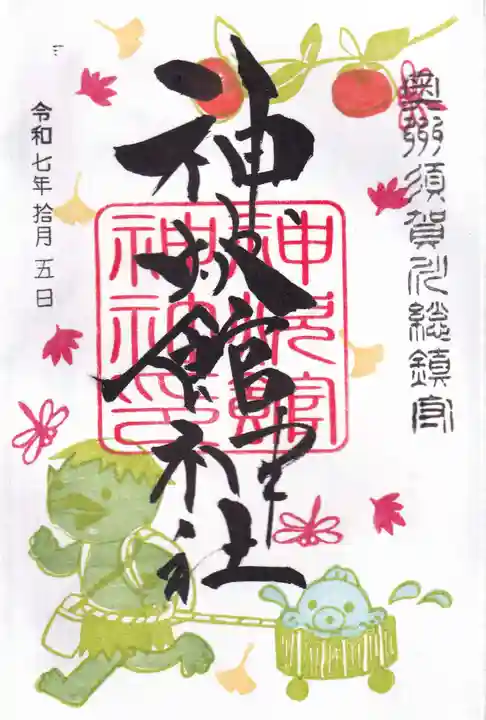 奥州須賀川総鎮守
神炊館神社
神炊館
神社神印
令和七年拾月五日